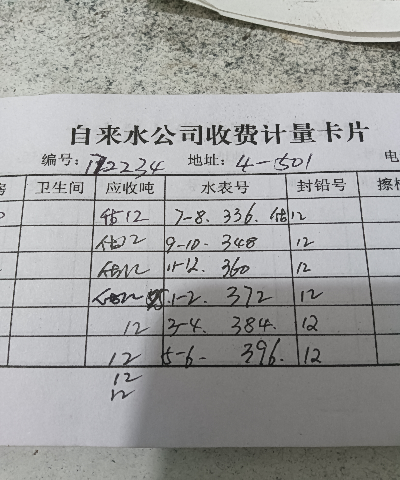 自来水公司收费计量卡片
编号: 172234 地址: 4-501 电
房 卫生间 应收吨 水表号 封铅号 擦
估12 7-8. 336. 估12
估12 9-10. 348 12
估12 11-12. 360 12
估12 1-2. 372 12
12 3-4. 384. 12
12 5-6- 396. 12
12
12